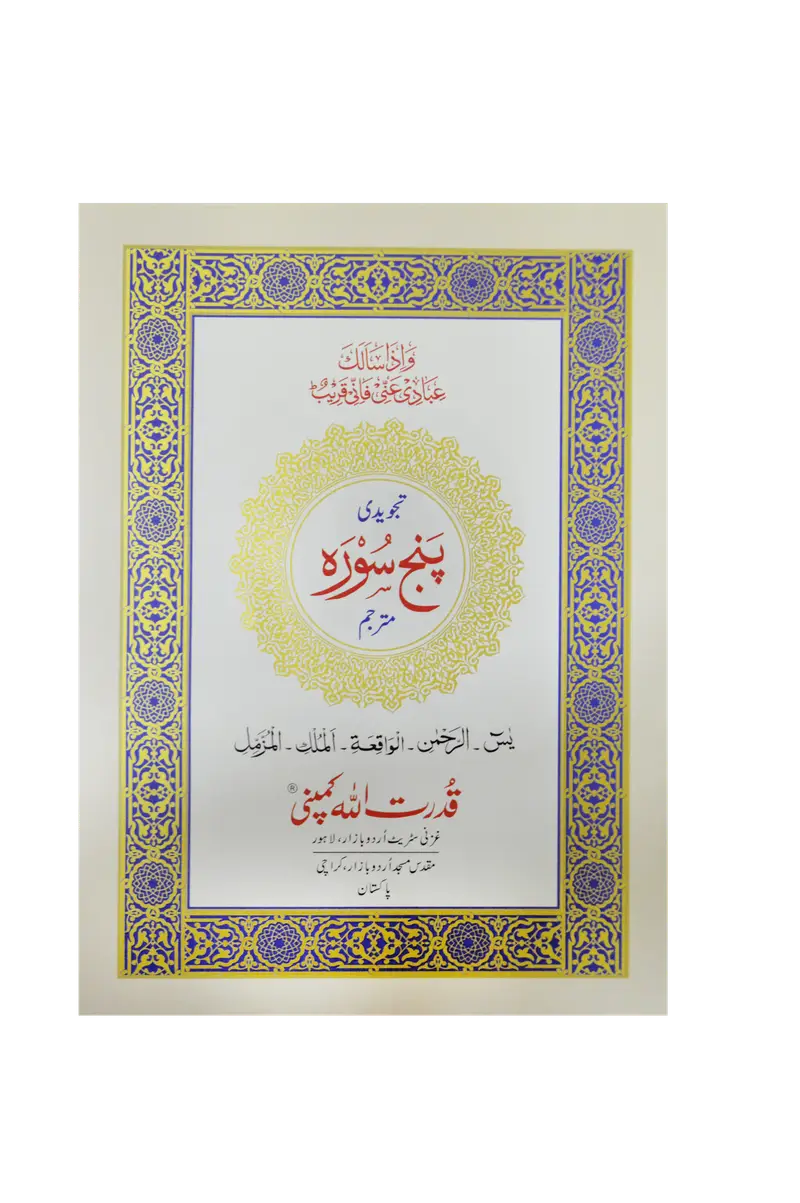 وَاِذَا سَاَلَكَ
عِبَادِىْ عَنِّىْ فَاِنِّىْ قَرِيْبٌ ؕ
تجویدی
پَنج سُوْرَہ
مترجم
یٰسٓ ۔ الرَحْمٰن ۔ الْوَاقِعَة ۔ اَلْمُلْكِ ۔ الْمُزَّمِّلِ
قُدرت اللہ کمپنی ®
غزنی سٹریٹ اُردو بازار، لاہور
مقدس مسجد اُردو بازار، کراچی
پاکستان